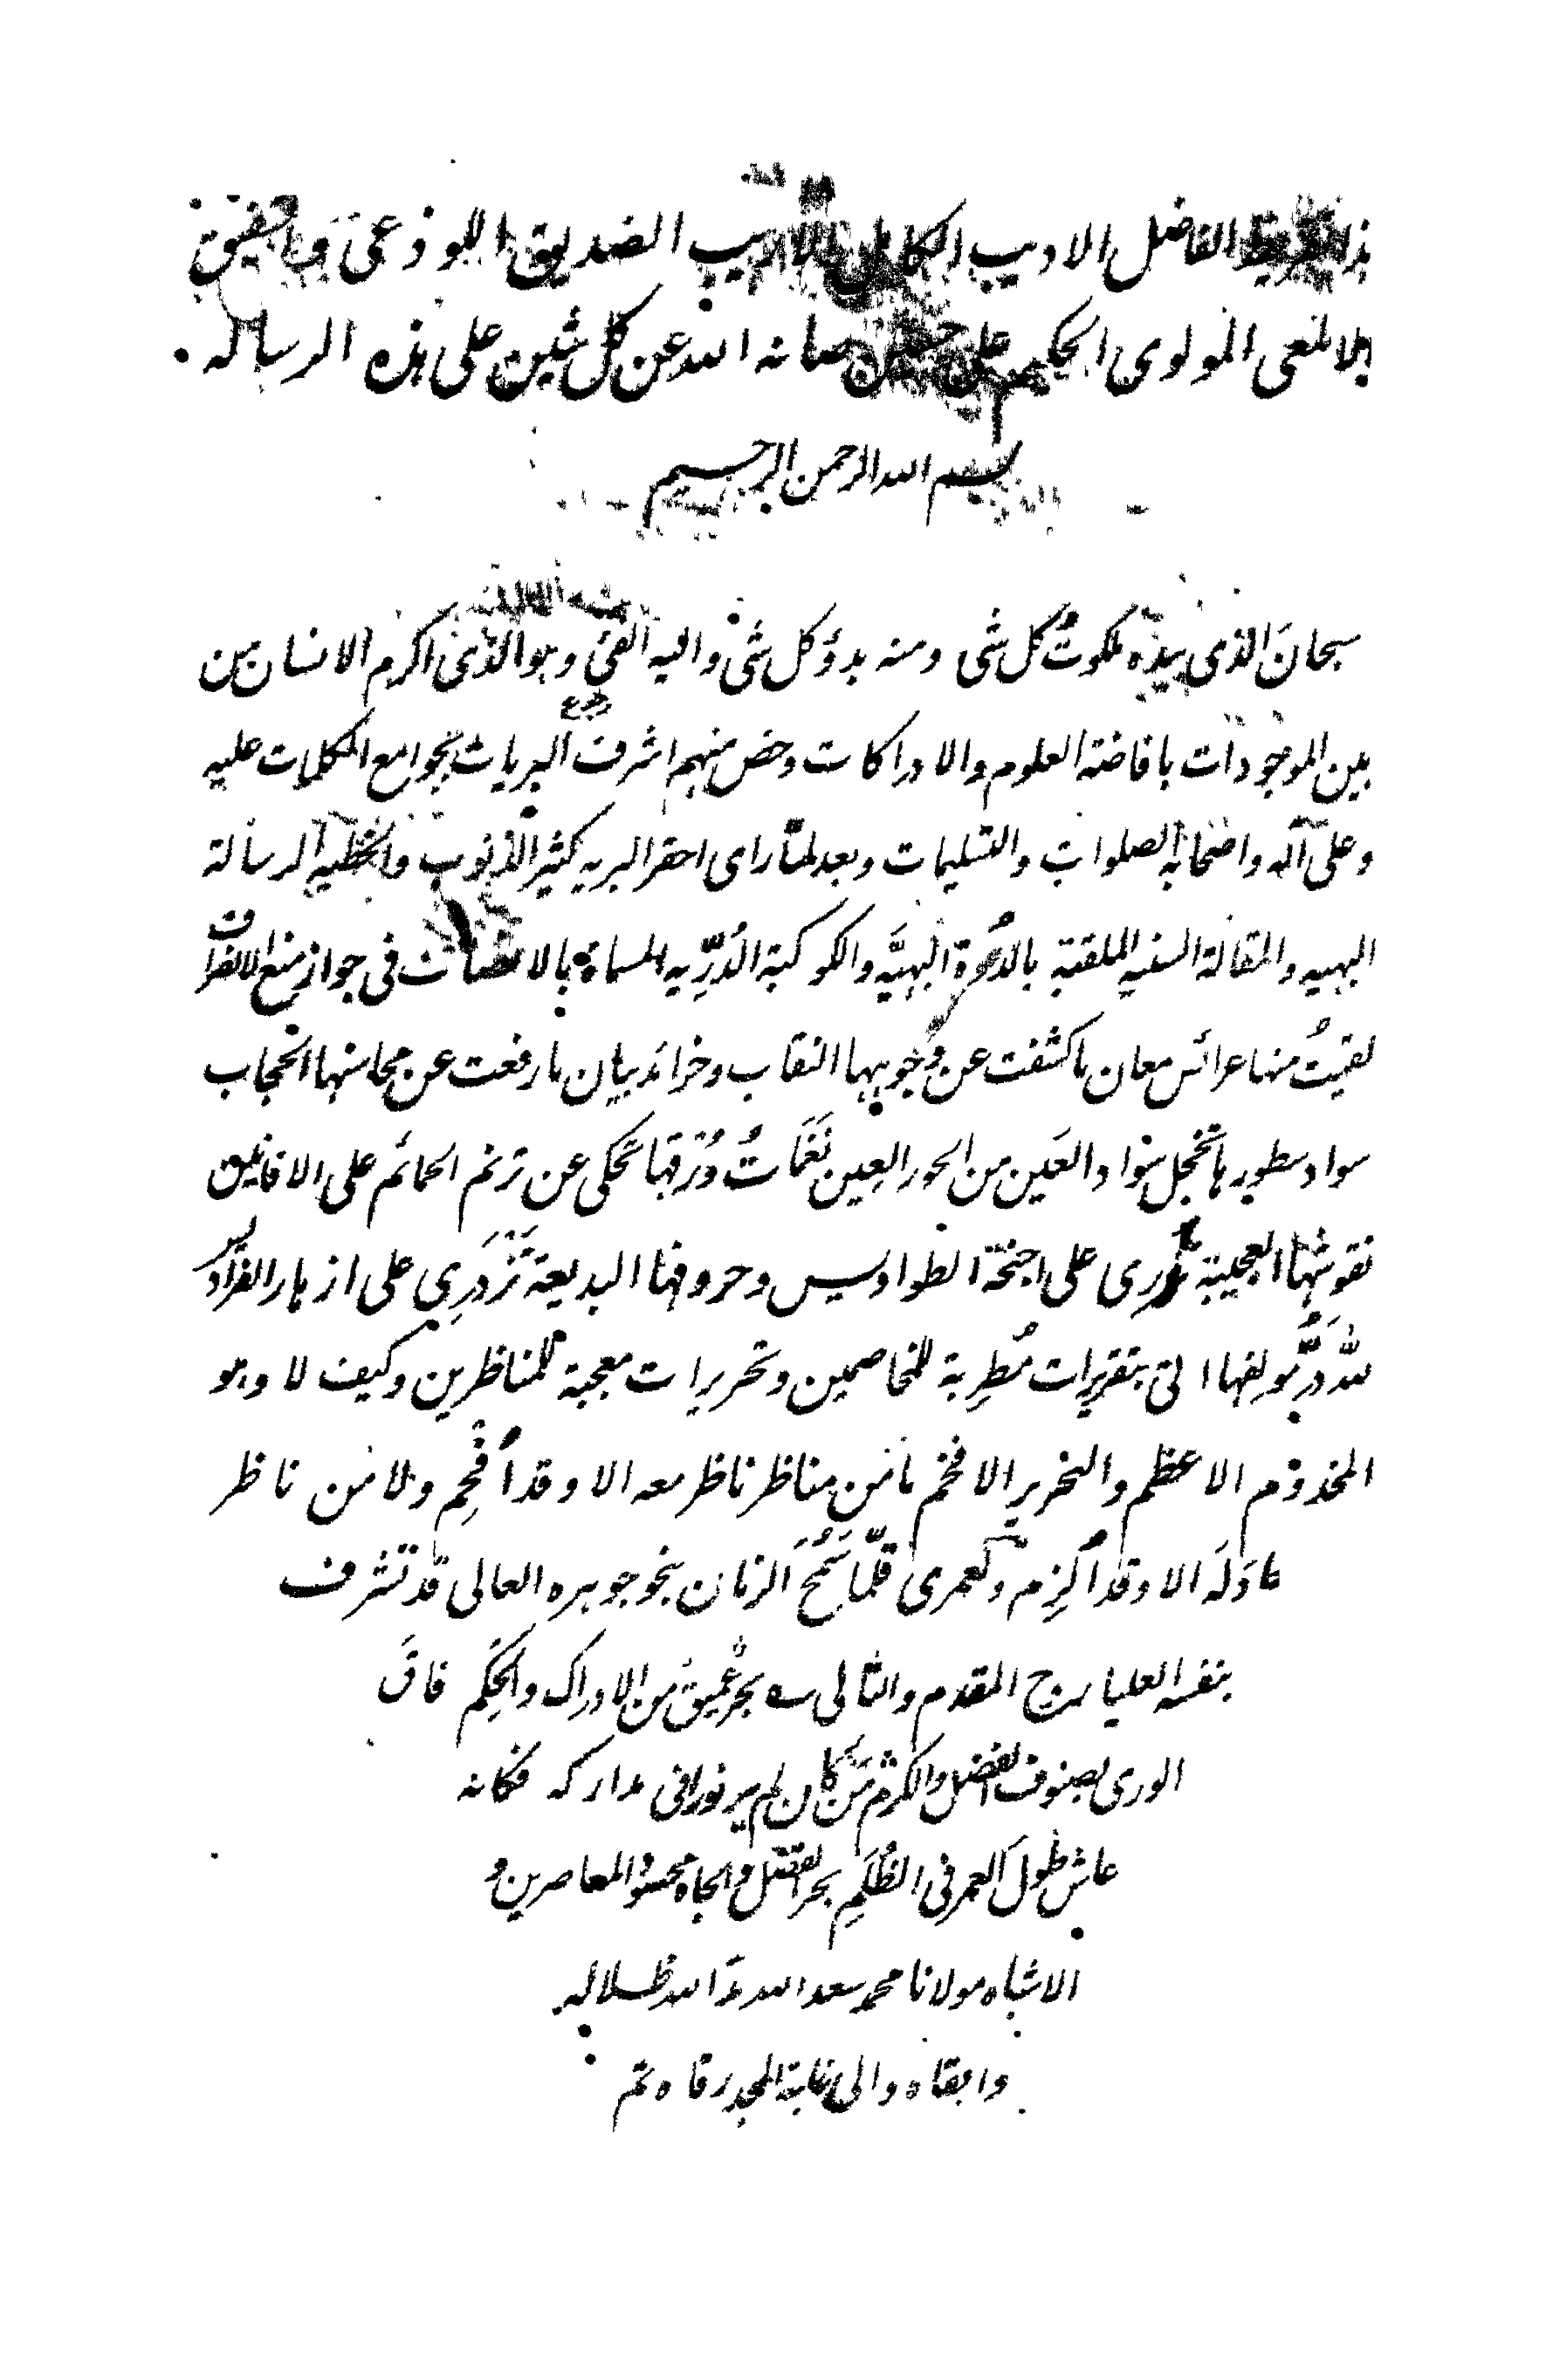 هذا تقريظ الفاضل الاديب الكامل الاريب الصديق اللوذعى والشفيق
الالمعى المولوى الحكيم على حسين صانه الله عن كل شين على هذه الرساله
بسم الله الرحمن الرحيم
سبحانَ الذى بيده ملكوتُ كل شى ومنه بدؤ كل شى واليه الفئ وهو الذى اكرم الانسان من
بين الموجودات بافاضة العلوم والادراكات وخص منهم اشرف البريات بجوامع الكلمات عليه
وعلى آله واصحابه الصلوات والتسليمات وبعد لمّا راى احقر البريه كثير الذنوب والخطيه الرسالة
البهيه والمقالة السنيه الملقبة بالدُرّة البهيَّه والكوكبة الدُرِّيه المسماة بالانصاف فى جواز منع الانصراف
لقيتُ منها عرائس معان ما كشفت عن وُجوهها النقاب وخرائد بيان ما رفعت عن محاسنها الحجاب
سواد سطورها تخجل سواد العَين من الحور العِين نَغَمَاتُ وُرْقها تحكى عن ترنم الحمائم على الافانين
نقوشها العجيبة تُزرِى على اجنحة الطواويس وحروفها البديعة تَزْدَرِى على ازهار الفراديس
للهِ دَرُّ مُولفها اتى بتقريرات مُطرِبة للمخاصمين وتحريرات معجبة للمناظرين وكيف لا وهو
المخدوم الاعظم والنحرير الافخم ما من مناظر ناظر معه الا وقد اُفْحِم ولا من ناظر
عادَلَه الا وقد اُلزِم ولعمرى قلّما سَمُحَ الزمان بنحو جوهره العالى قد تشرف
بنفسه العليا المقدم والتالى ؎ بحرٌ عميقٌ من الادراك والحِكَم فاقَ
الورى بصنوف الفضل والكرم مَن كان لم ير نورا فى مداركه فكانه
عاش طولَ العمر فى الظُلَمِ بحر الفضل والجاه محسود المعاصرين و
الاشباه مولانا محمد سعد الله مدّ الله ظلاله
وابقاه والى غاية المجد رقاه تم